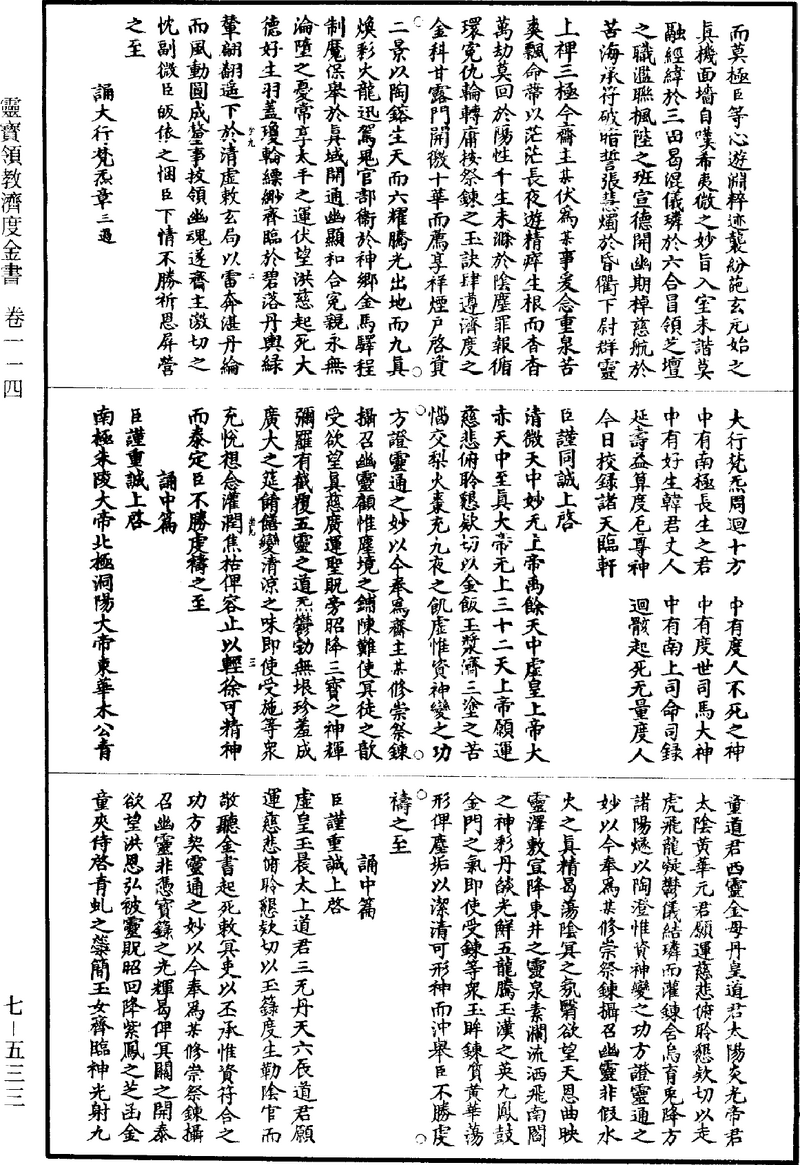 靈寶領教濟度金書　卷一一四
七—五三三
而莫極臣等心遊淵粹迹襲紛葩玄元始之
真機面墻自嘆希夷微之妙旨入室未諧莫
融經緯於三田曷混儀璘於六合冒領芝壇
之職濫聯楓陛之班宣德開幽期棹慈航於
苦海承符破暗誓張慧燭於昏衢下尉群靈
上禆三極今齋主某伏為某事爰念重泉苦
爽飄命帶以茫茫長夜遊精瘁生根而杳杳
萬劫莫回於陽性千生未滌於陰塵罪報循
環冤仇輪轉庸按祭鍊之玉訣肆遵濟度之
金科甘露門開徹十華而薦享祥煙戶啓資
二景以陶鎔生天而六耀騰光出地而九真
煥彩火龍迅駕鬼官部衛於神鄉金馬驛程
制魔保舉於真域開通幽顯和合冤親永無
淪墮之憂常享太平之運伏望洪慈起死大
德好生羽蓋瓊輪縹緲齊臨於碧落丹輿綠
輦翩翩遙下於清虛敕玄局以雷奔湛丹綸
而風動圓成螢事拔領幽魂遂齋主激切之
忱副微臣皈依之悃臣下情不勝祈恩屏營
之至
誦大行梵炁章三過
大行梵炁周迴十方　中有度人不死之神
中有南極長生之君　中有度世司馬大神
中有好生韓君丈人　中有南上司命司錄
延壽益算度厄尊神　迴骸起死无量度人
今日校錄諸天臨軒
臣謹同誠上啓
清微天中妙无上帝禹餘天中虛皇上帝大
赤天中至真大帝无上三十二天上帝願運
慈悲俯聆懇欵切以金飯玉漿濟三塗之苦
惱交梨火棗充九夜之飢虛惟資神變之功
方證靈通之妙以今奉為齋主某修崇祭鍊
攝召幽靈顧惟塵境之鋪陳難使冥徒之歆
受欲望真慈廣運聖貺旁昭降三寶之神輝
彌羅有截覆五靈之道炁欝勃無垠珍羞成
廣大之筵餚饍變清涼之味即使受施等衆
充悅想念灌潤焦枯俾容止以輕徐可精神
而泰定臣不勝虔禱之至
誦中篇
臣謹重誠上啓
南極朱陵大帝北極洞陽大帝東華木公青
童道君西靈金母丹皇道君太陽炎光帝君
太陰黃華元君願運慈悲俯聆懇欵切以走
虎飛龍凝欝儀結璘而灌鍊舍烏育兎降方
諸陽燧以陶澄惟資神變之功方證靈通之
妙以今奉為某修崇祭鍊攝召幽靈非假水
火之真精曷蕩陰冥之氛翳欲望天恩曲映
靈澤敷宣降東井之靈泉素瀾流洒飛南閻
之神彩丹燄光鮮五龍騰玉漢之英九鳳鼓
金門之氣即使受鍊等衆玉眸鍊質黃華蕩
形俾塵垢以潔清可形神而沖舉臣不勝虔
禱之至
誦中篇
臣謹重誠上啓
虛皇玉晨太上道君三元丹天六辰道君願
運慈悲俯聆懇欵切以玉籙度生勒陰官而
敬聽金書起死敕冥吏以丕承惟資符合之
功方契靈通之妙以今奉為某修崇祭鍊攝
召幽靈非憑寶籙之光輝曷俾冥關之開泰
欲望洪恩弘被靈貺昭回降紫鳳之芝函金
童夾侍啓青虬之蘂簡玉女齊臨神光射九